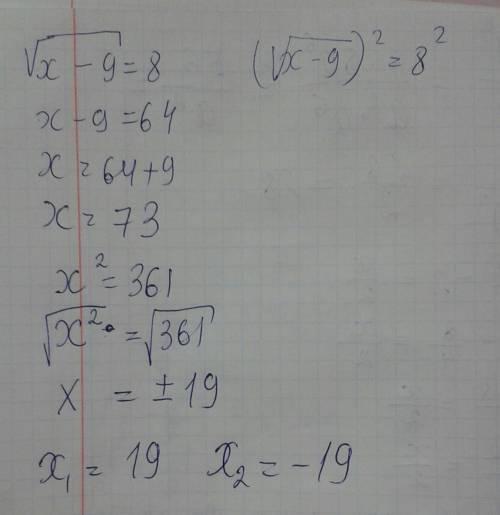 √(x - 9) = 8 (√(x-9))² = 8²
x - 9 = 64
x = 64 + 9
x = 73
x² = 361
√x² = √361
x = ± 19
x₁ = 19 x₂ = -19